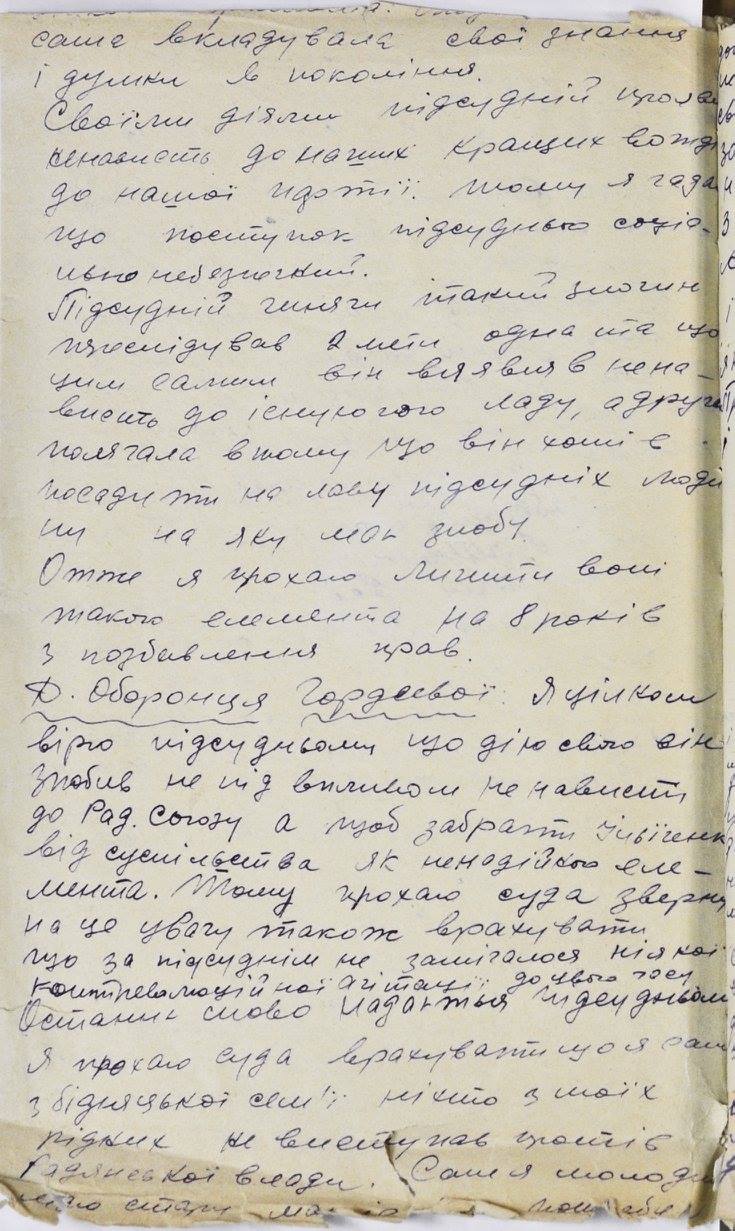 сама вкладувала свої знання
і думки в покоління.
Своїми діями підсудній прояв
ненависть до наших кращих вожді
до нашої партії. Тому я гада
що поступок підсуднього соціа-
льно небезпечний.
Підсудній чинячи такий злочин
преслідував 2 мети одна та що
цим самим він виявив нена-
висть до існуючого ладу, а друга
полягала в тому що він хотів
посадити на лаву підсудніх люди
ну на яку мав злобу.
Отже я прохаю лишити волі
такого елемента на 8 років
з позбавлення прав.
Оборонця Гордєєвої. Я цілком
вірю підсудньому що дію свою він
зробив не під впливом ненависти
до Рад. Союзу а щоб забрати
від суспільства як ненадійного еле-
мента. Тому прохаю суда зверну
на це увагу також врахувати
що за підсуднім не замічалося ніякої
контрреволюційної агітації до цього часу
Останнє слово надається підсудньом
Я прохаю суда врахувати що я сам
з бідняцької сем'ї ніхто з моїх
рідних не виступав протів
Радянської влади. Сам я молоди